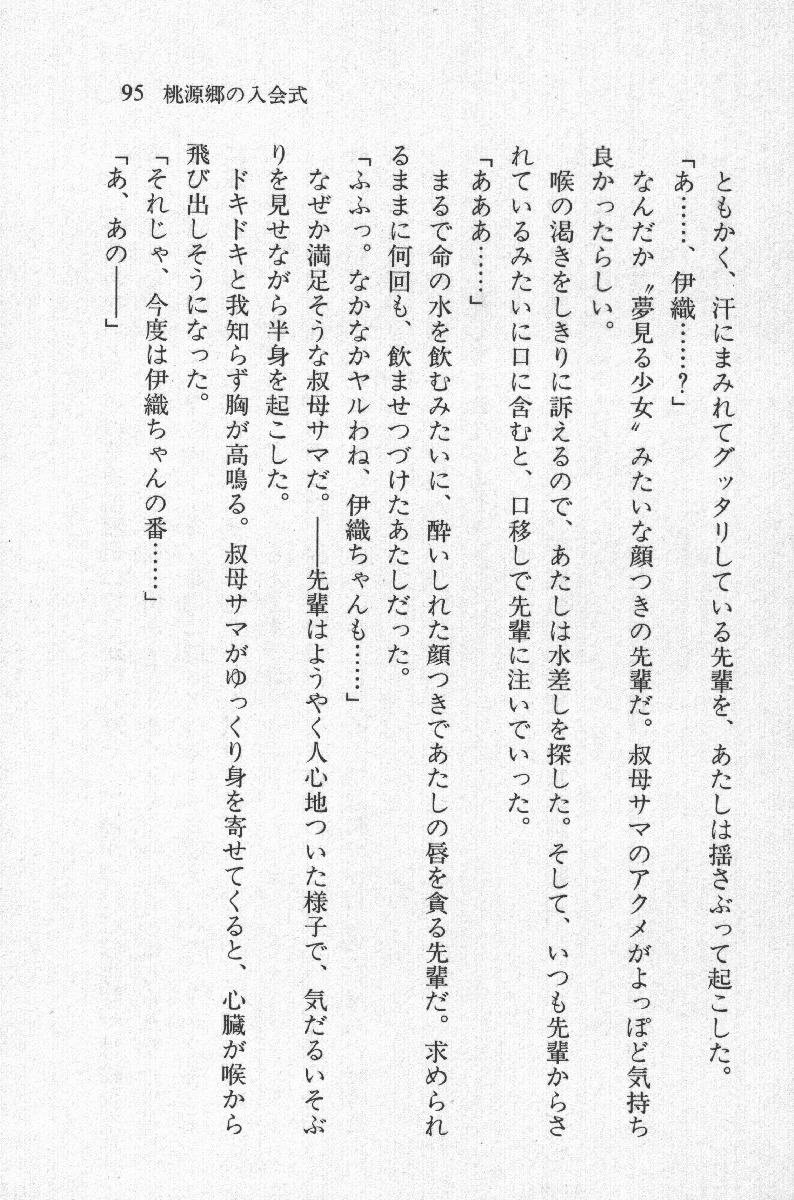 95 桃源郷の入会式
ともかく、汗にまみれてグッタリしている先輩を、あたしは揺さぶって起こした。
「あ……、伊織……？」
なんだか〝夢見る少女〟みたいな顔つきの先輩だ。叔母サマのアクメがよっぽど気持ち
良かったらしい。
喉の渇きをしきりに訴えるので、あたしは水差しを探した。そして、いつも先輩からさ
れているみたいに口に含むと、口移しで先輩に注いでいった。
「あああ……」
まるで命の水を飲むみたいに、酔いしれた顔つきであたしの唇を貪る先輩だ。求められ
るままに何回も、飲ませつづけたあたしだった。
「ふふっ。なかなかヤルわね、伊織ちゃんも……」
なぜか満足そうな叔母サマだ。――先輩はようやく人心地ついた様子で、気だるいそぶ
りを見せながら半身を起こした。
ドキドキと我知らず胸が高鳴る。叔母サマがゆっくり身を寄せてくると、心臓が喉から
飛び出しそうになった。
「それじゃ、今度は伊織ちゃんの番……」
「あ、あの――」